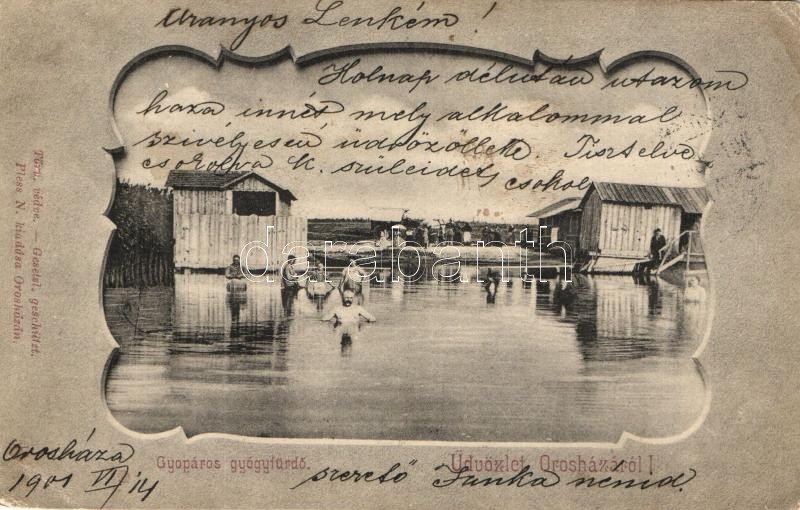 Aranyos Lenkém!
Holnap délután utazom
haza innét mely alkalommal
szivélyesen üdvözöllek. Tisztelve
csokolva k. szüleidet csokol
darabanth.com
Törv. védve. — Gesetzl. geschützt.
Pless N. kiadása Orosházán.
Gyopáros gyógyfürdő.
Üdvözlet Orosházáról!
Orosháza
1901 VI/14
szerető Junka nénid.